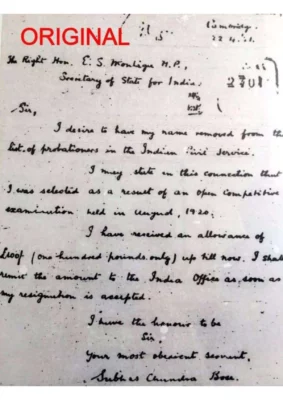 ORIGINAL
22.4.21.
The Right Hon. E. S. Montague M.P.,
Secretary of State for India.
Sir,
I desire to have my name removed from the
list of probationers in the Indian Civil Service.
I may state in this connection that
I was selected as a result of an open competitive
examination held in August, 1920.
I have received an allowance of
£100/- (one hundred pounds only) up till now. I shall
remit the amount to the India Office as soon as
my resignation is accepted.
I have the honour to be
Sir
Your most obedient servant,
Subhas Chandra Bose.